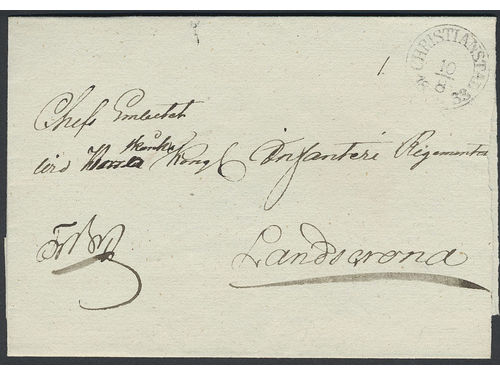 CHRISTIANSTAD
10
8
33
1.
Chefs Embetet
vid Kongl Infanteri Regementet
Landscrona